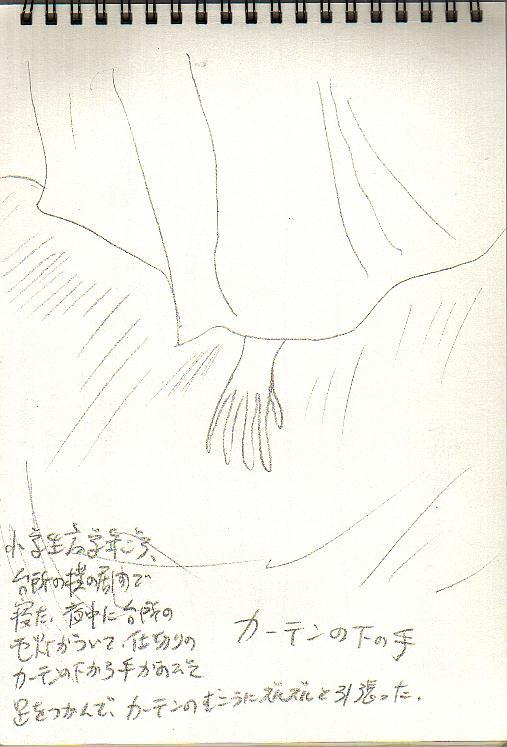 小学生高学年ころ、
台所の横の居間で
寝た。夜中に台所の
電灯がついて、仕切りの
カーテンの下から手がのびて
足をつかんで、カーテンのむこうにズルズルと引っ張った。
カーテンの下の手